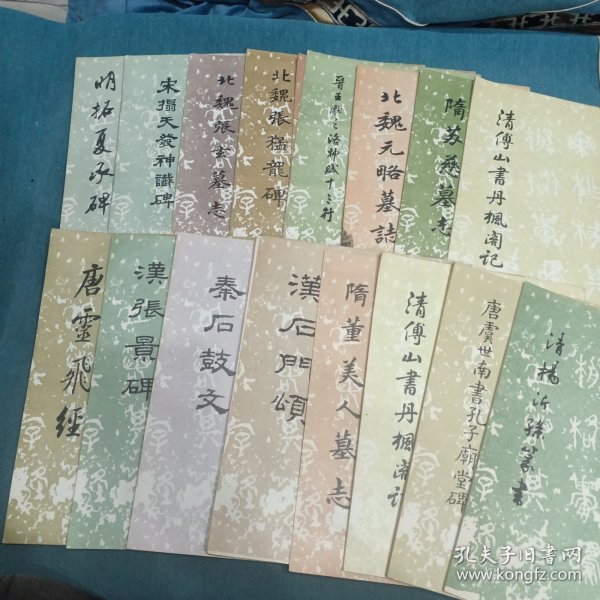 明拓夏承碑
宋搨天發神讖碑
北魏張玄墓志
北魏張猛龍碑
晉王獻之洛神賦十三行
北魏元略墓誌
隋蘇慈墓志
清傅山書丹楓閣記
唐靈飛經
漢張景碑
秦石鼓文
漢石門頌
隋董美人墓志
清傅山書丹楓閣記
唐虞世南書孔子廟堂碑
清楊沂孫篆書
孔夫子旧书网
www.kongfz.com